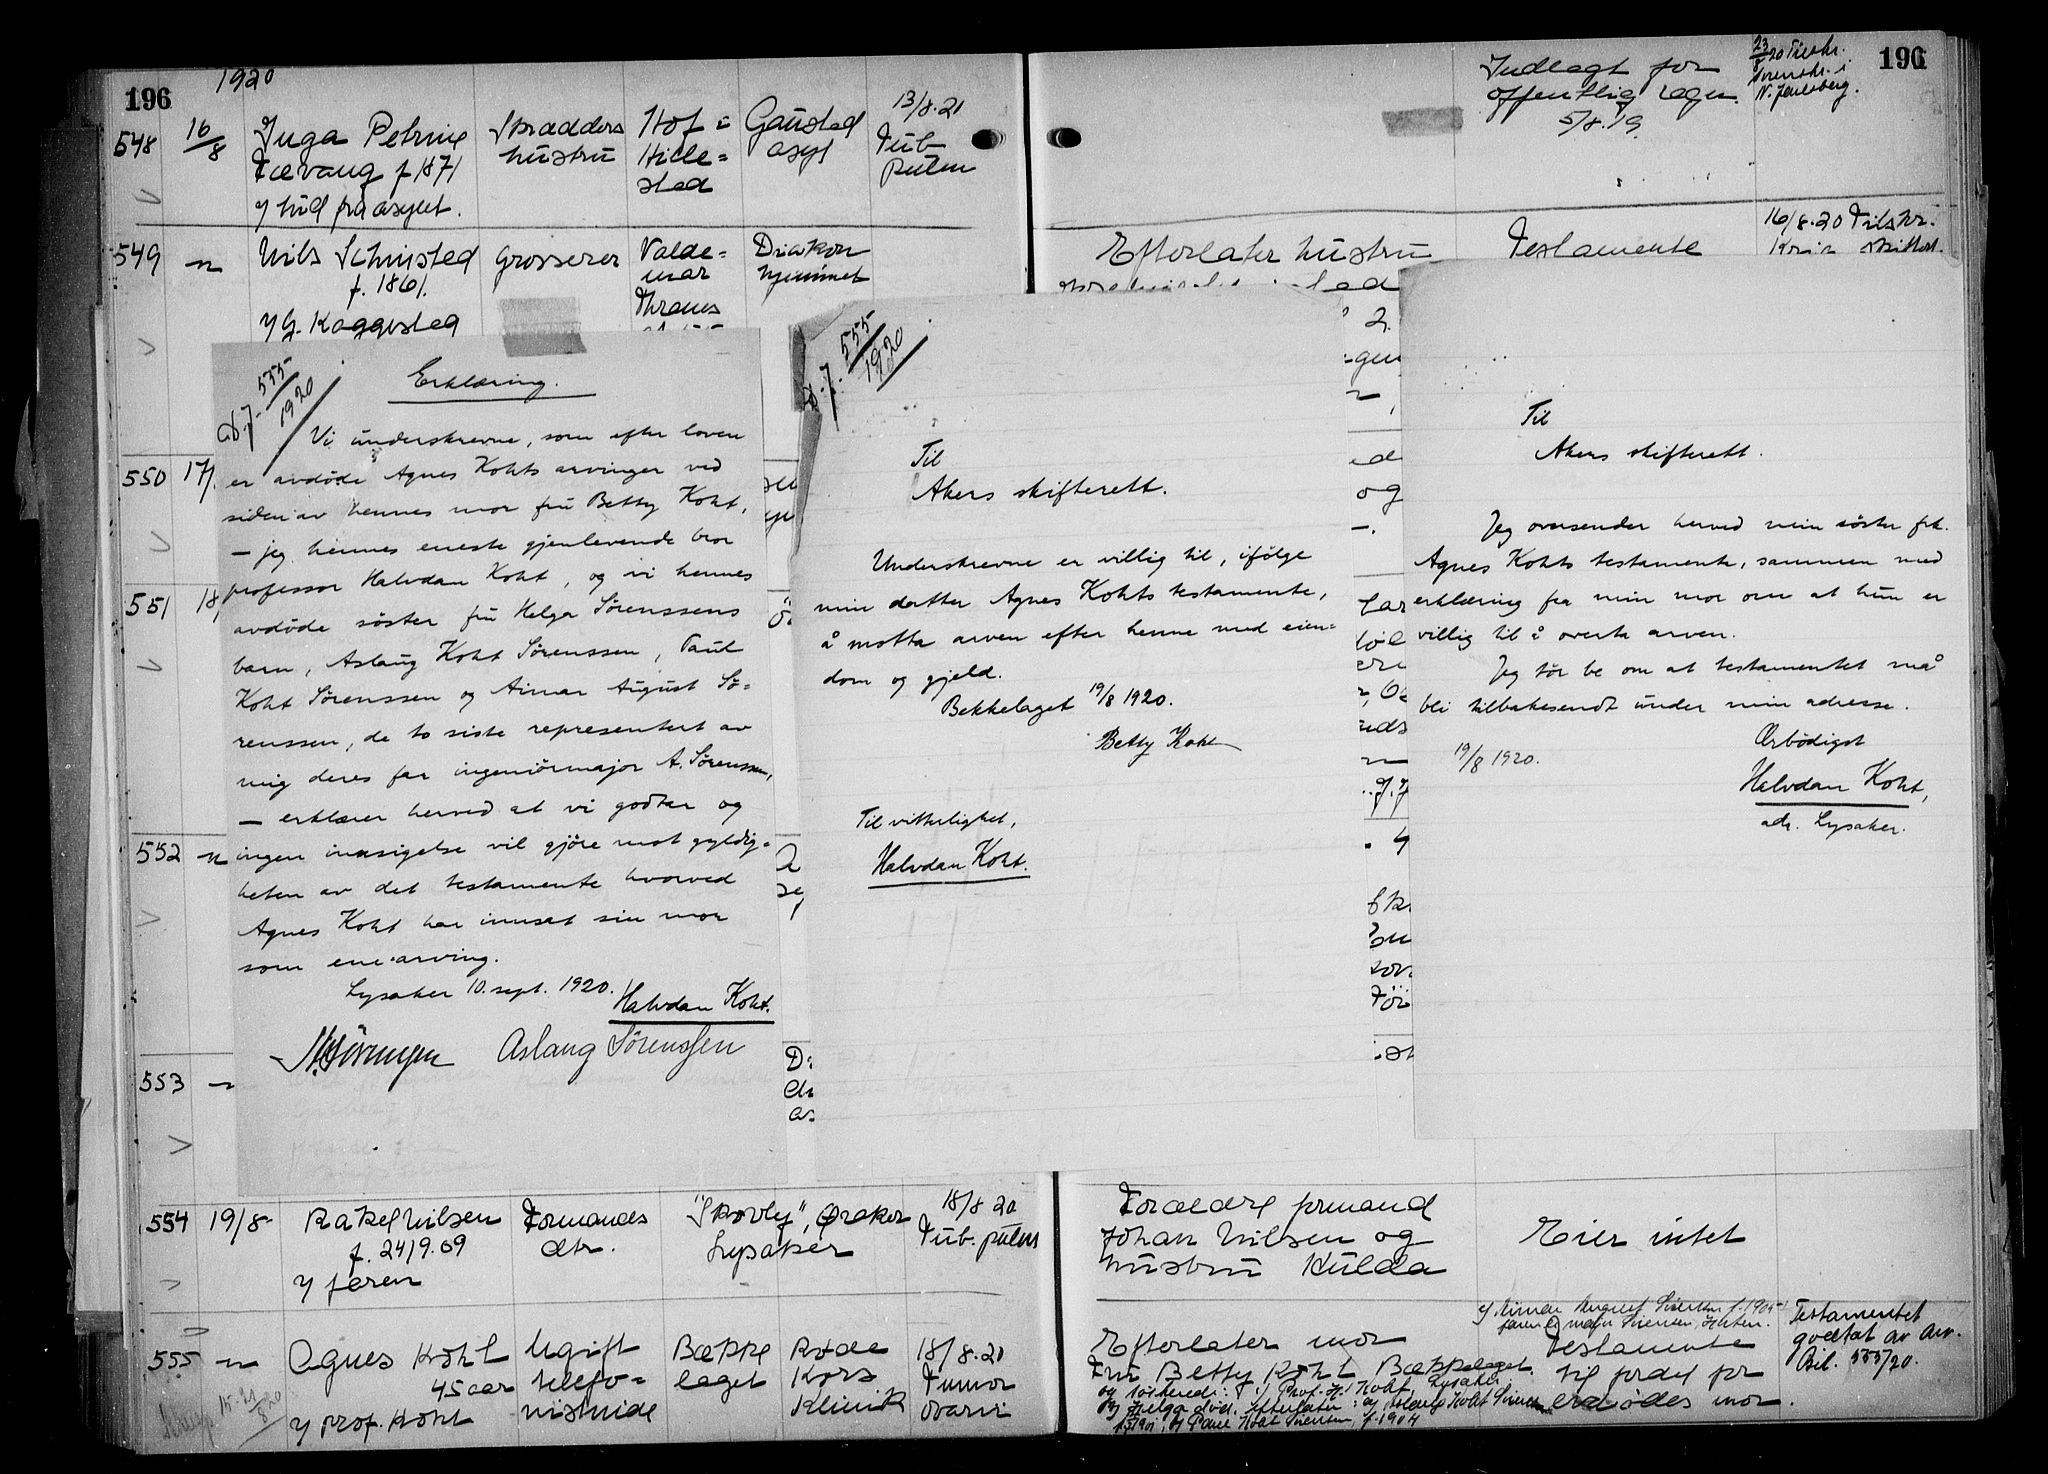 196
1920
548 16/8 Inga Petrine
Tævang f 1871
v/ bud fra asylet.
Skrædders
hustru
Hof i
Hille=
stad
Gausted
asyl
13/8.20
Tub.
pulm
Indlagt for
offentlig regn.
5/8.19.
23/8 20 Tilskr.
Sorenskr. i
N. Jarlsberg.
196
549 "
Nils Schnsted
f. 1861.
v/ G. Koggested
Grosserer
Valde=
mar
Thranes
Diakon
hjemmet
Efterlater hustru
Testamente
16/8.20 Tilskr.
550 17/
551 18/
552 "
553 "
A.J. 555/1920
Erklæring.
Vi underskrevne, som efter loven
er avdøde Agnes Kohts arvinger ved
siden av hennes mor fru Betty Koht,
— jeg hennes eneste gjenlevende bror
professor Halvdan Koht, og vi hennes
avdøde søster fru Helga Sørenssens
barn, Aslaug Koht Sørenssen, Paul
Koht Sørenssen og Aimar August Sø=
renssen, de to siste representert av
mig deres far ingeniørmajor A. Sørenssen,
— erklærer herved at vi godtar og
ingen innsigelse vil gjøre mot gyldig=
heten av det testamente hvorved
Agnes Koht har innsat sin mor
som enearving.
Lysaker 10. sept. 1920.
Halvdan Koht.
Aslaug Sørenssen
A.J. 555/1920
Til
Akers skifterett.
Underskrevne er villig til, ifølge
min datter Agnes Kohts testamente,
å motta arven efter henne med eien=
dom og gjeld.
Bekkelaget 19/8 1920.
Betty Koht
Til vitterlighet,
Halvdan Koht.
Til
Akers skifterett.
Jeg oversender herved min søster frk.
Agnes Kohts testamente, sammen med
erklæring fra min mor om at hun er
villig til å overta arven.
Jeg tør be om at testamentet må
bli tilbakesendt under min adresse.
19/8 1920.
Ærbödigst
Halvdan Koht,
adr. Lysaker.
554 19/8
Rakel Nilsen
f. 24/9.09
v/ faren
Formands
dtr.
"Skovly", Øraker
Lysaker
18/8 20
Tub. pulm
Forældre formand
Johan Nilsen og
hustru Hulda
Eier intet
555 "
Agnes Koht
45 aar
v/ prof. Koht
Ugift
telefo=
nistinde
Bække
laget
Røde
Kors
Klinik
18/8.20
Tumor
ovarii
Efterlater mor
Fru Betty Koht Bækkelaget.
og søskende: 1) Prof. H. Koht, Lysaker
2) Helga død. Efterlater: a) Aslaug Koht Sørensen
f. 1901, b) Paul Koht Sørensen, f. 1904
c) Aimar August Sørensen f. 190
faren er major Sørensen, Horten.
Testamente
til fordel for
avdødes mor.
Testamentet
godtat av arv.
Bil. 555/20.